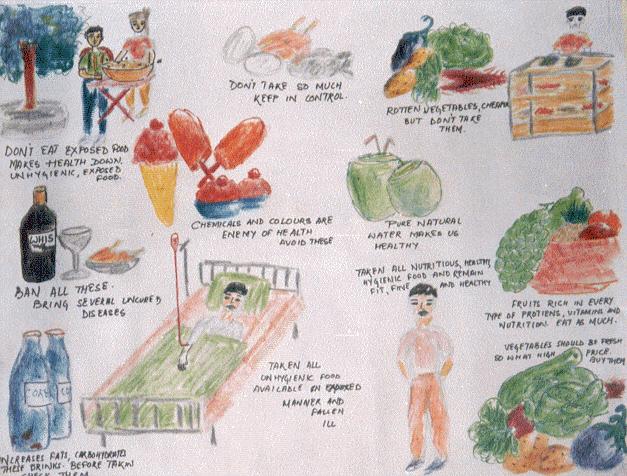 DON'T TAKE SO MUCH
KEEP IN CONTROL.
ROTTEN VEGETABLES, CHEAPER
BUT DON'T TAKE
THEM.
DON'T EAT EXPOSED FOOD
MAKES HEALTH DOWN.
UNHYGIENIC, EXPOSED
FOOD.
CHEMICALS AND COLOURS ARE
ENEMY OF HEALTH
AVOID THESE
PURE NATURAL
WATER MAKES US
HEALTHY
WHIS
BAN ALL THESE.
BRING SEVERAL UNCURED
DISEASES
TAKEN ALL NUTRITIOUS, HEALTHY
HYGIENIC FOOD AND REMAIN
FIT, FINE AND HEALTHY
FRUITS RICH IN EVERY
TYPE OF PROTIENS, VITAMINS AND
NUTRITION. EAT AS MUCH.
VEGETABLES SHOULD BE FRESH
SO WHAT HIGH PRICE.
BUY THEM
TAKEN ALL
UNHYGIENIC FOOD
AVAILABLE IN EXPOSED
MANNER AND
FALLEN
ILL
INCREASES FATS, CARBOHYDRATES
THESE DRINKS. BEFORE TAKING
CHECK THEM